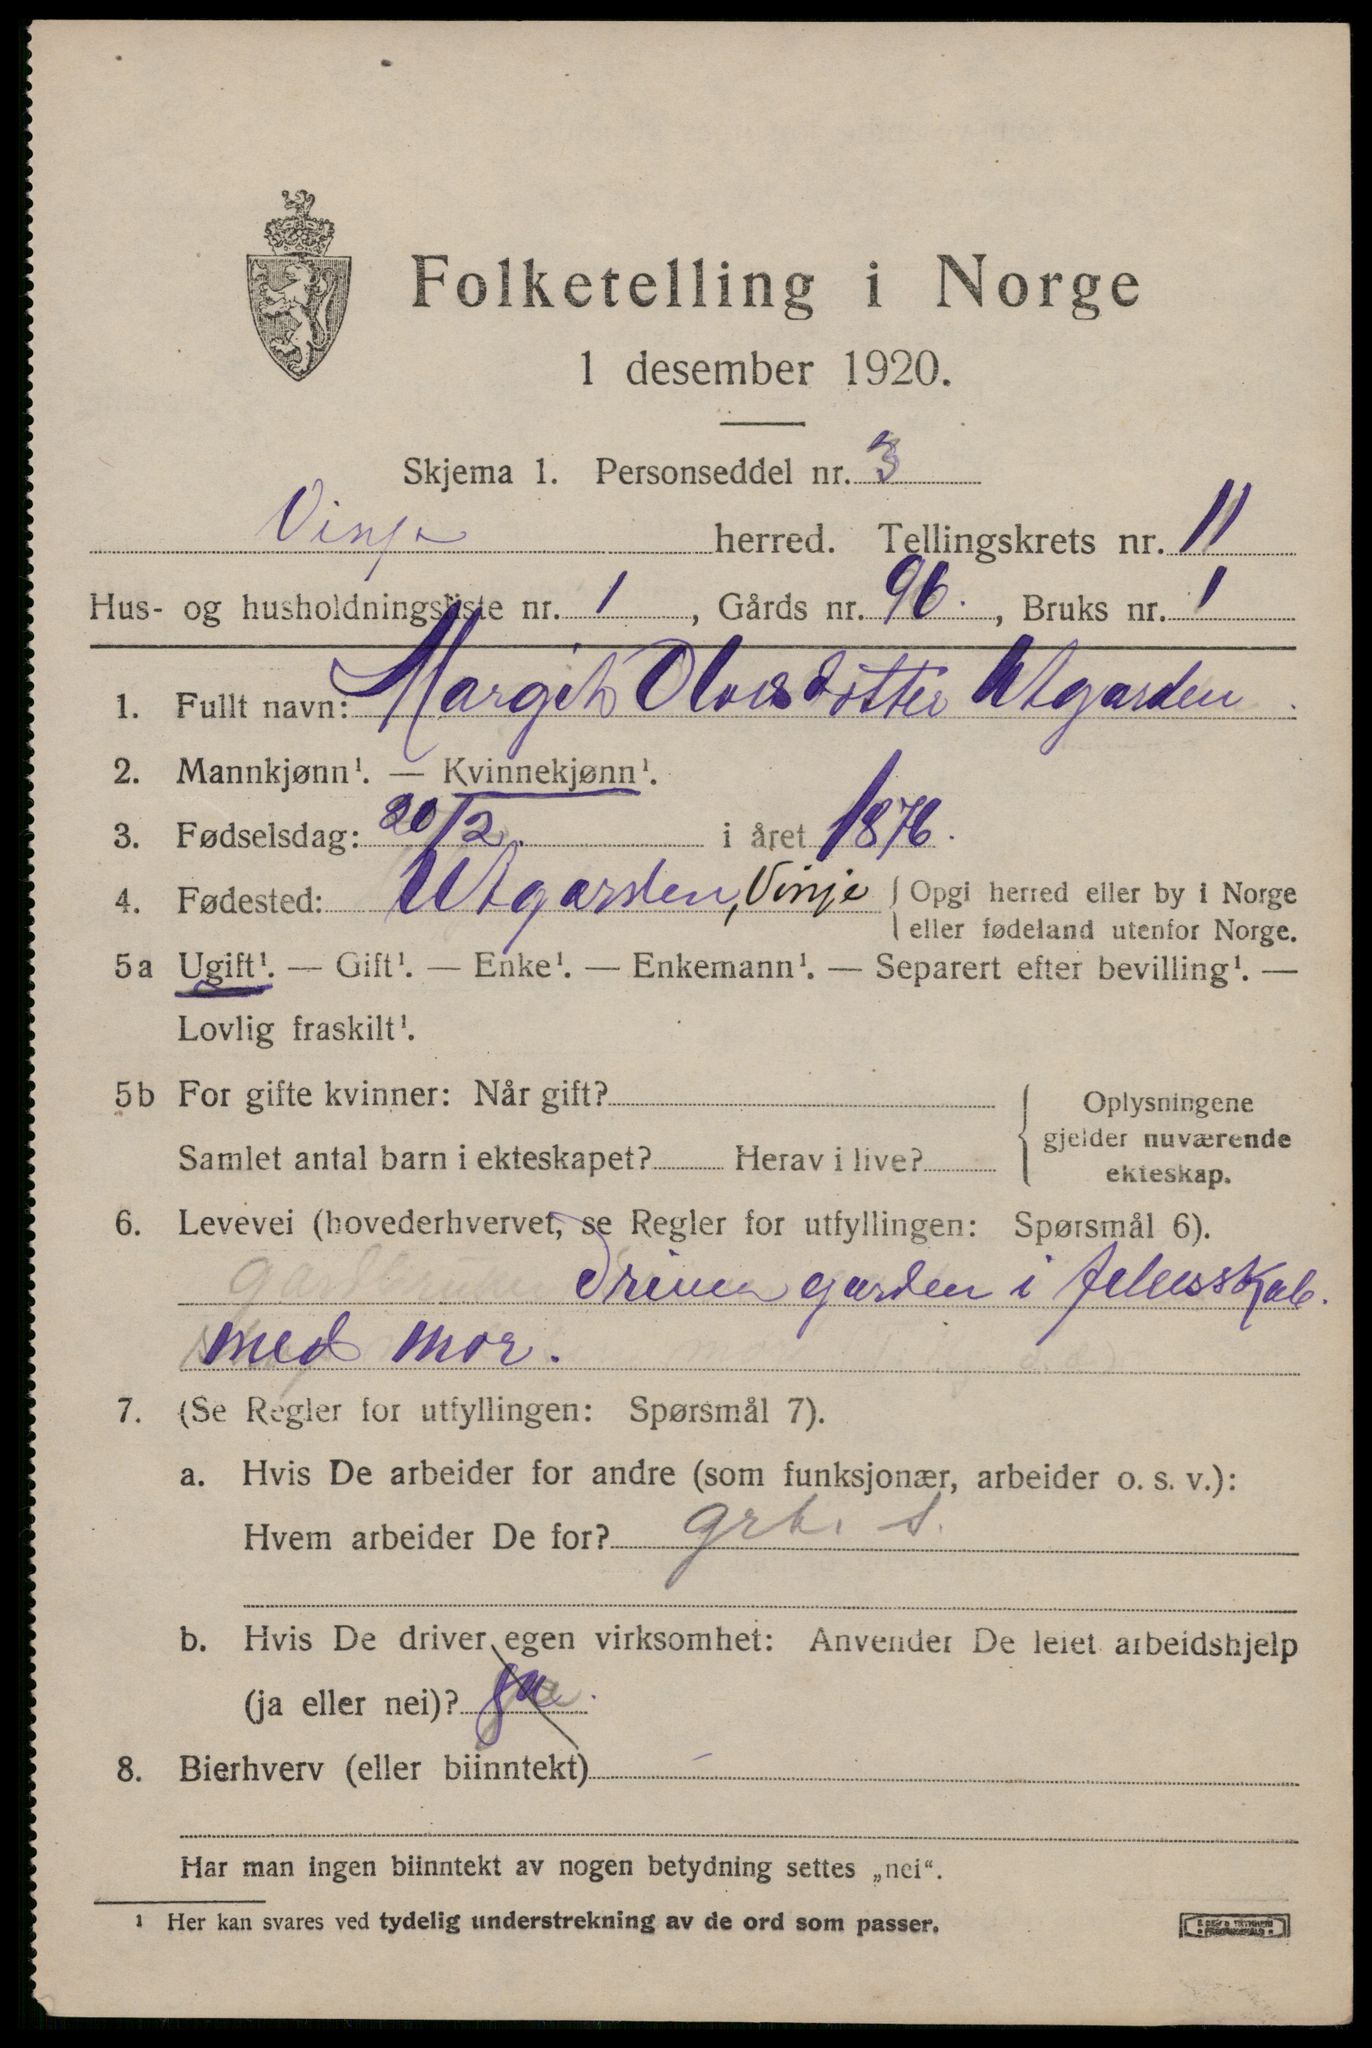 Folketelling i Norge
1 desember 1920.
Skjema 1. Personseddel nr. 3
Vinje herred. Tellingskrets nr. 11
Hus- og husholdningsliste nr. 1, Gårds nr. 96., Bruks nr. 1
1. Fullt navn: Margit Olvsdotter Utgarden.
2. Mannkjønn¹. — Kvinnekjønn¹.
3. Fødselsdag: 20/2. i året 1876.
4. Fødested: Utgarden, Vinje { Opgi herred eller by i Norge
eller fødeland utenfor Norge.
5a Ugift¹. — Gift¹. — Enke¹. — Enkemann¹. — Separert efter bevilling¹. —
Lovlig fraskilt¹.
5b For gifte kvinner: Når gift?
Samlet antal barn i ekteskapet? Herav i live?
{ Oplysningene
gjelder nuværende
ekteskap.
6. Levevei (hovederhvervet, se Regler for utfyllingen: Spørsmål 6).
Driver garden i felesskab.
med mor.
7. (Se Regler for utfyllingen: Spørsmål 7).
a. Hvis De arbeider for andre (som funksjonær, arbeider o. s. v.):
Hvem arbeider De for? grb. s.
b. Hvis De driver egen virksomhet: Anvender De leiet arbeidshjelp
(ja eller nei)? ja.
8. Bierhverv (eller biinntekt) –
Har man ingen biinntekt av nogen betydning settes „nei".
¹ Her kan svares ved tydelig understrekning av de ord som passer.